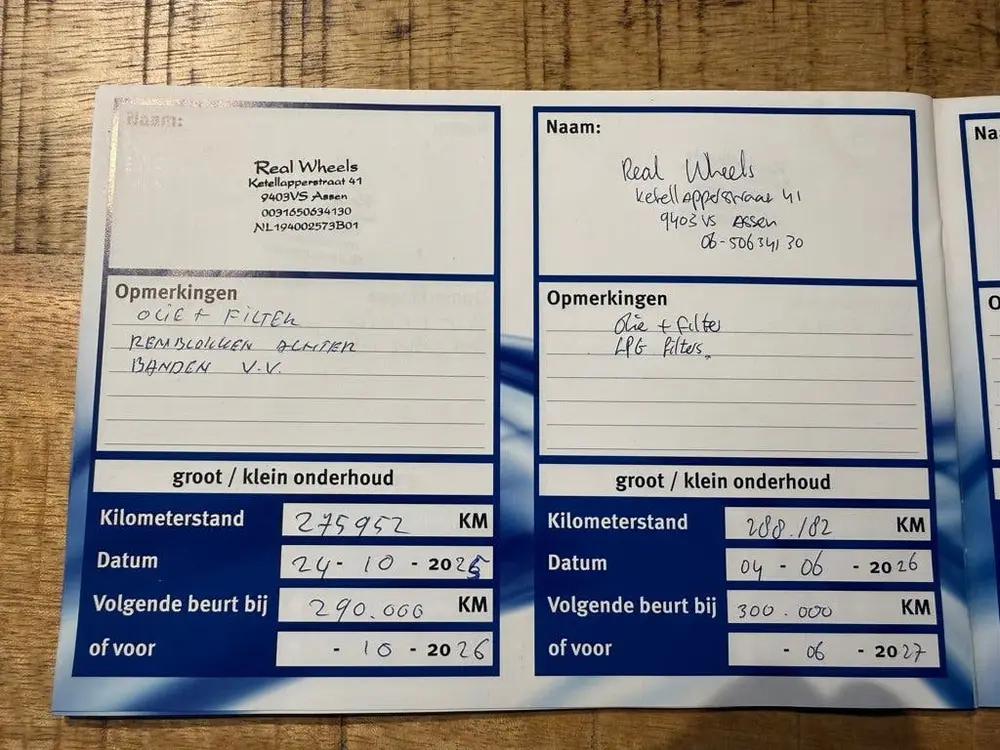 Naam:
Real Wheels
Ketellapperstraat 41
9403VS Assen
0031650634130
NL194002573B01
Opmerkingen
OLIE + FILTER
REMBLOKKEN ACHTER
BANDEN V.V.
groot / klein onderhoud
Kilometerstand 275952 KM
Datum 24 - 10 - 2025
Volgende beurt bij 290.000 KM
of voor - 10 - 2026
Naam:
Real Wheels
Ketellapperstraat 41
9403 VS Assen
06-50634130
Opmerkingen
Olie + filter
LPG filters.
groot / klein onderhoud
Kilometerstand 288.182 KM
Datum 04 - 06 - 2026
Volgende beurt bij 300.000 KM
of voor - 06 - 2027
Na
O